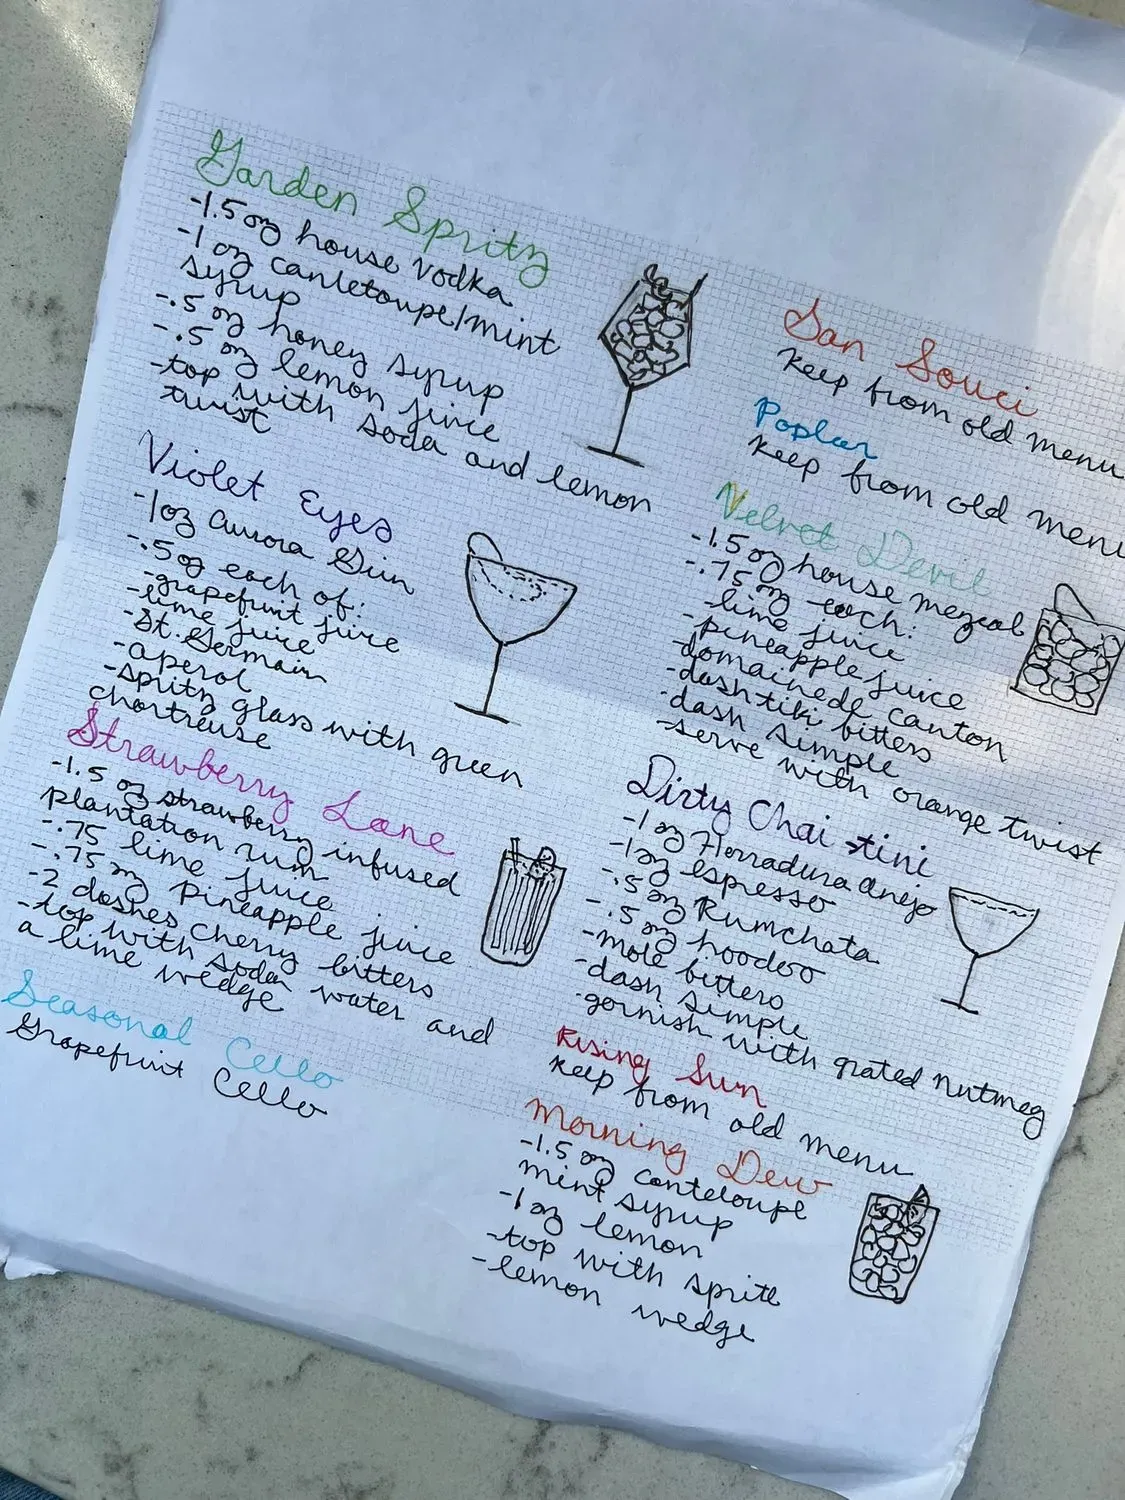 Garden Spritz
-1.5 oz house vodka
-1 oz canletoupe/mint
syrup
-.5 oz honey syrup
-.5 oz lemon juice
-top with soda and lemon
twist
Violet Eyes
-1oz Aurora Gin
-.5oz each of:
-grapefruit juice
-lime juice
-St. Germain
-aperol
-spritz glass with green
chortreuse
Strawberry Lane
-1.5 oz strawberry infused
plantation rum
-.75 lime juice
-.75 oz pineapple juice
-2 dashes cherry bitters
-top with soda water and
a lime wedge
Seasonal Cello
Grapefruit Cello
San Souci
Keep from old menu
Poplar
Keep from old menu
Velvet Devil
-1.5 oz house mezcal
-.75 oz each:
-lime juice
-pineapple juice
-domaine de canton
-dash tiki bitters
-dash simple
-serve with orange twist
Dirty Chai-tini
-1 oz Herradura anejo
-1oz espresso
-.5 oz Rumchata
-.5 oz hoodoo
-molé bitters
-dash simple
-garnish with grated nutmeg
Rising Sun
Keep from old menu
Morning Dew
-1.5 oz canteloupe
mint syrup
-1oz lemon
-top with sprite
-lemon wedge